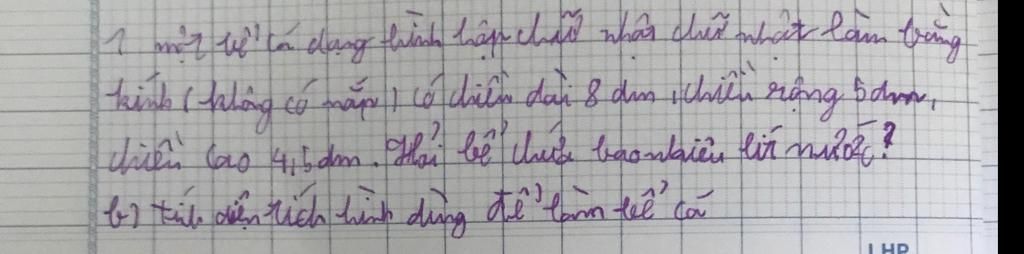 1 một bể cá dạng hình hộp chữ nhật chữ nhật làm bằng
kính (không có nắp) có chiều dài 8 dm, chiều rộng 5 dm,
chiều cao 4,5 dm. Hỏi bể chứa bao nhiêu lít nước?
b) tính diện tích kính dùng để làm bể cá
LHP